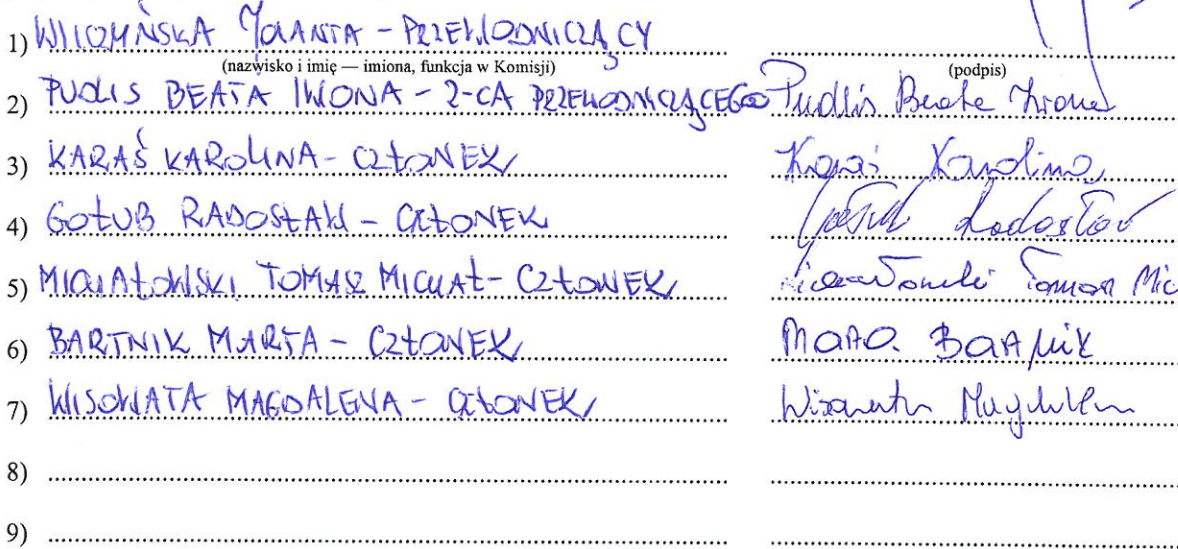 1) WILCZYŃSKA JOLANTA - PRZEWODNICZĄCY
(nazwisko i imię — imiona, funkcja w Komisji) (podpis)
2) PUDLIS BEATA IWONA - Z-CA PRZEWODNICZĄCEGO Pudlis Beata Iwona
3) KARAŚ KAROLINA - CZŁONEK Karaś Karolina
4) GOŁUB RADOSŁAW - CZŁONEK Radosław
5) MICHAŁOWSKI TOMASZ MICHAŁ - CZŁONEK Tomasz Mic
6) BARTNIK MARTA - CZŁONEK Marta Bartnik
7) WISOWATA MAGDALENA - CZŁONEK Wisowata Magdalena
8)
9)